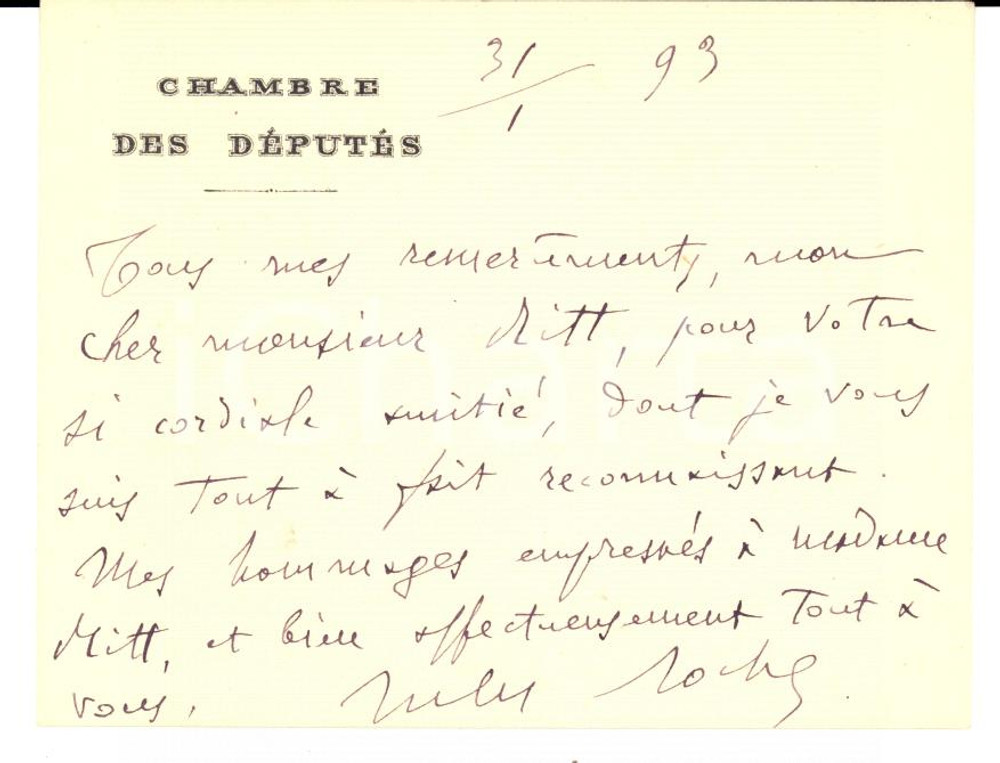 CHAMBRE
DES DÉPUTÉS
31/1 93
Tous mes remerciements, mon
cher monsieur Ritt, pour votre
si cordiale amitié, dont je vous
suis tout à fait reconnaissant.
Mes hommages empressés à madame
Ritt, et bien affectueusement tout à
vous,
Jules Roche